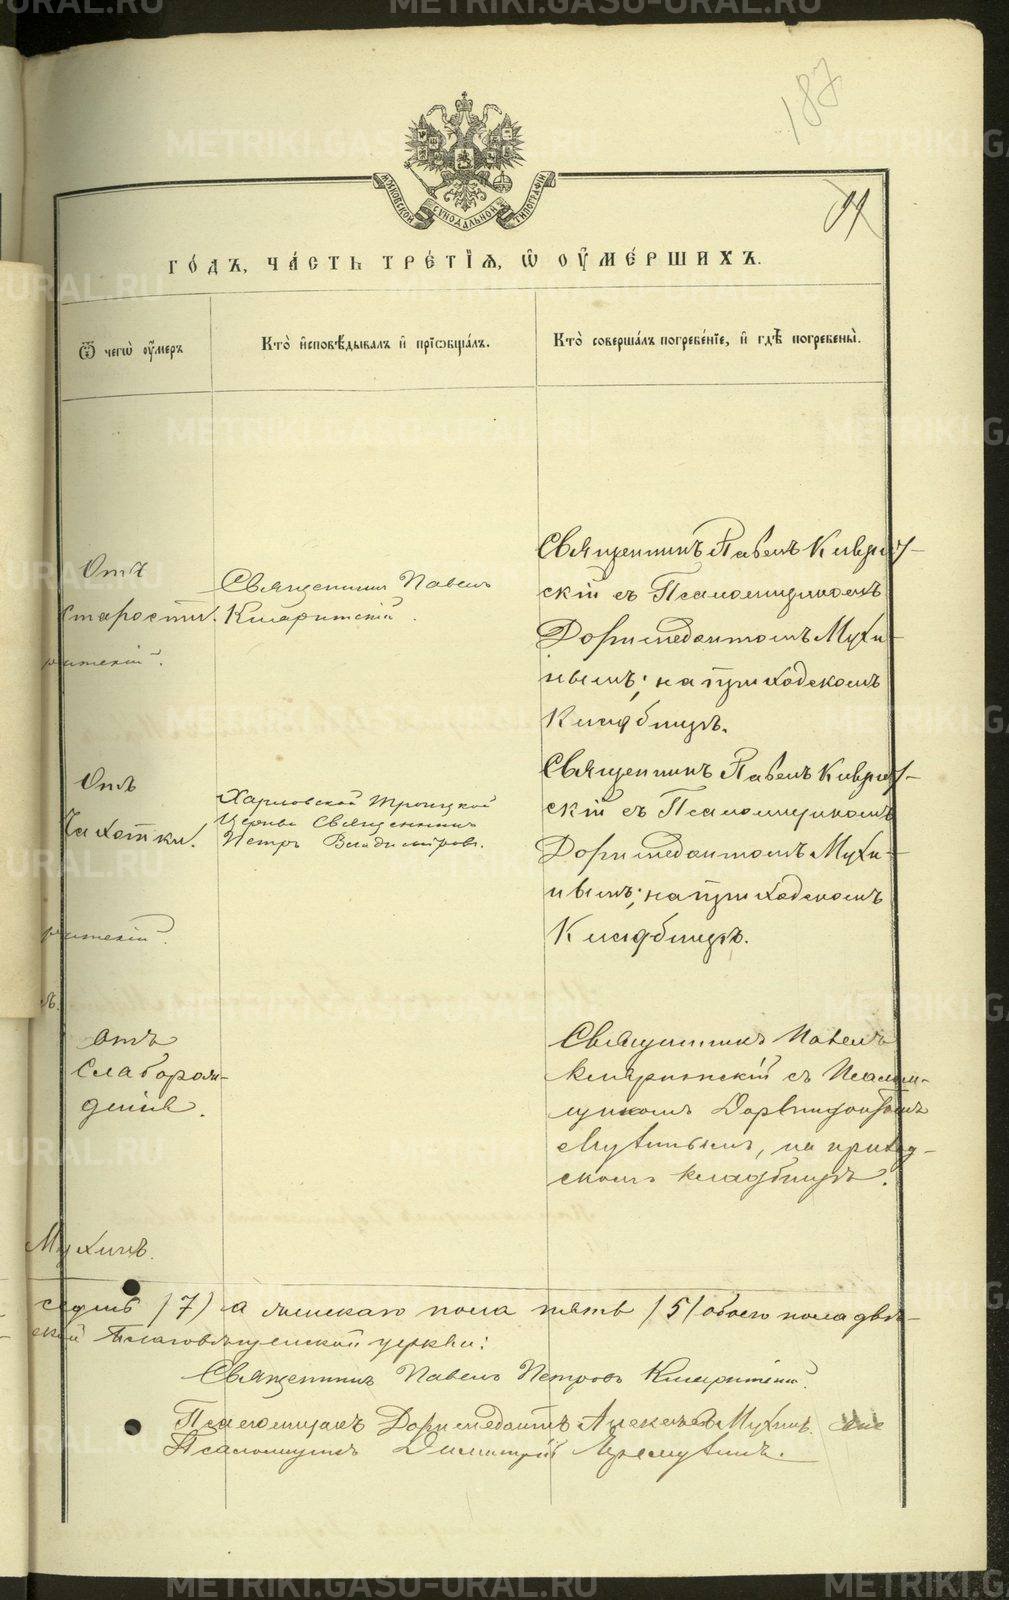 187
91
МОСКОВСКОЙ СУНОДАЛЬНОЙ ТИПОГРАФІИ
ГО́ДЪ, ЧА́СТЬ ТРЕ́ТІѦ, Ѽ ОУ҆МЕ́РШИХЪ.
Ѿ чегѡ̀ оу҆́меръ
Кто̀ и҆сповѣ́дывалъ и҆ прїѡбща́лъ.
Кто̀ соверша́лъ погребе́нїе, и҆ гдѣ̀ погребены̀.
Отъ
старости.
Священникъ Павелъ
Священникъ Павелъ
скій съ Псаломщикомъ
Доримедонтомъ Мухи-
нымъ; на приходскомъ
Кладбищѣ.
Отъ
Чахотки.
Харловской Троицкой
Церкви Священникъ
Петръ Владиміровъ.
Священникъ Павелъ
скій съ Псаломщикомъ
Доримедонтомъ Мухи-
нымъ; на приходскомъ
Кладбищѣ.
отъ
Слаборож-
денія.
Священникъ Павелъ
съ Псалом-
щикомъ Доримедонтомъ
Мухинымъ, на приход-
скомъ кладбищѣ.
Мухинъ.
седмь /7/ а женскаго пола пять /5/ обоего пола двѣ-
ской Благовѣщенской церкви:
Священникъ Павелъ Петровъ
Псаломщикъ Доримедонтъ Алексѣевъ Мухинъ.
Псаломщикъ Димитрій
METRIKI.GASU-URAL.RU